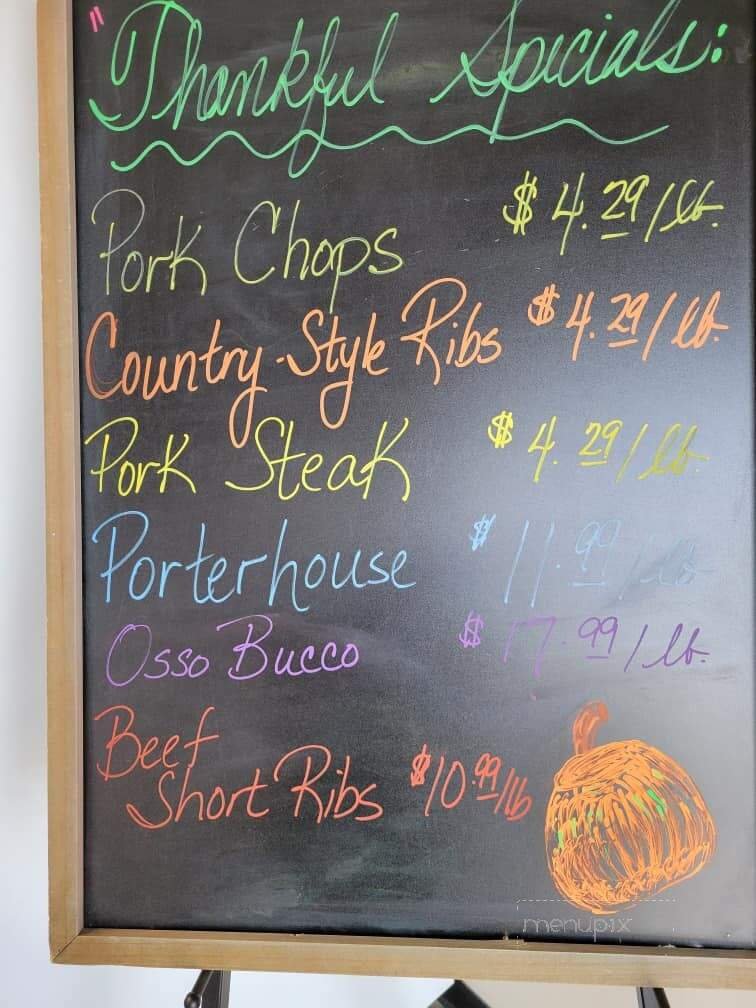 "Thankful Specials:
Pork Chops $4.29/lb.
Country-Style Ribs $4.29/lb.
Pork Steak $4.29/lb.
Porterhouse $11.99/lb
Osso Bucco $17.99/lb.
Beef
Short Ribs $10.99/lb
menupix